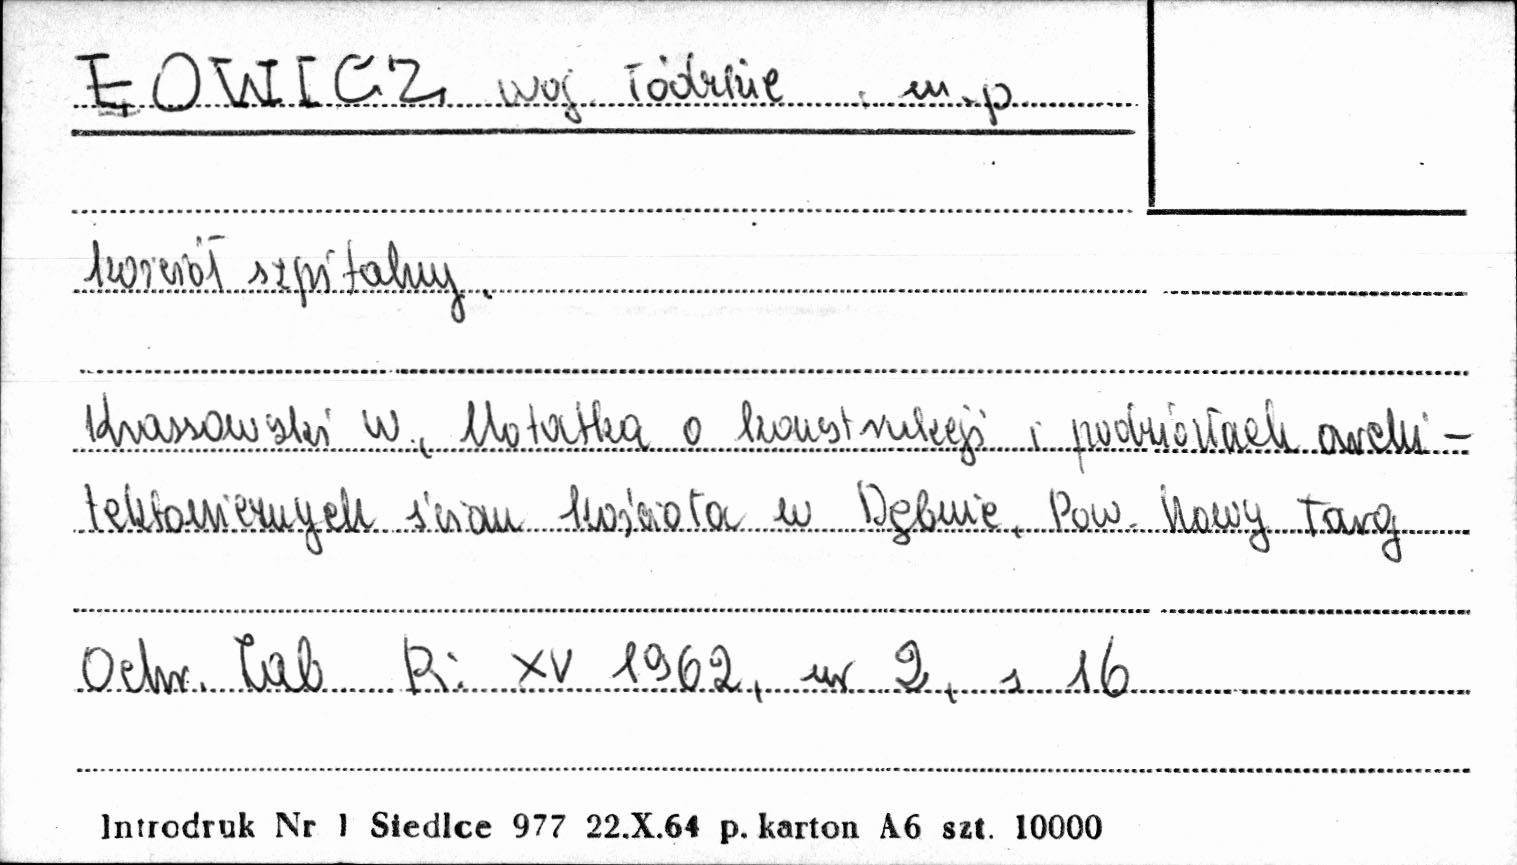 ŁOWICZ woj. łódzkie, m.p
kościół szpitalny.
Krassowski W., Notatka o konstrukcji i podziałach archi-
tektonicznych ścian kościoła w Dębnie, Pow. Nowy Targ
Ochr. Zab R: XV 1962, nr 2, s 16
Introdruk Nr 1 Siedlce 977 22.X.64 p. karton A6 szt. 10000